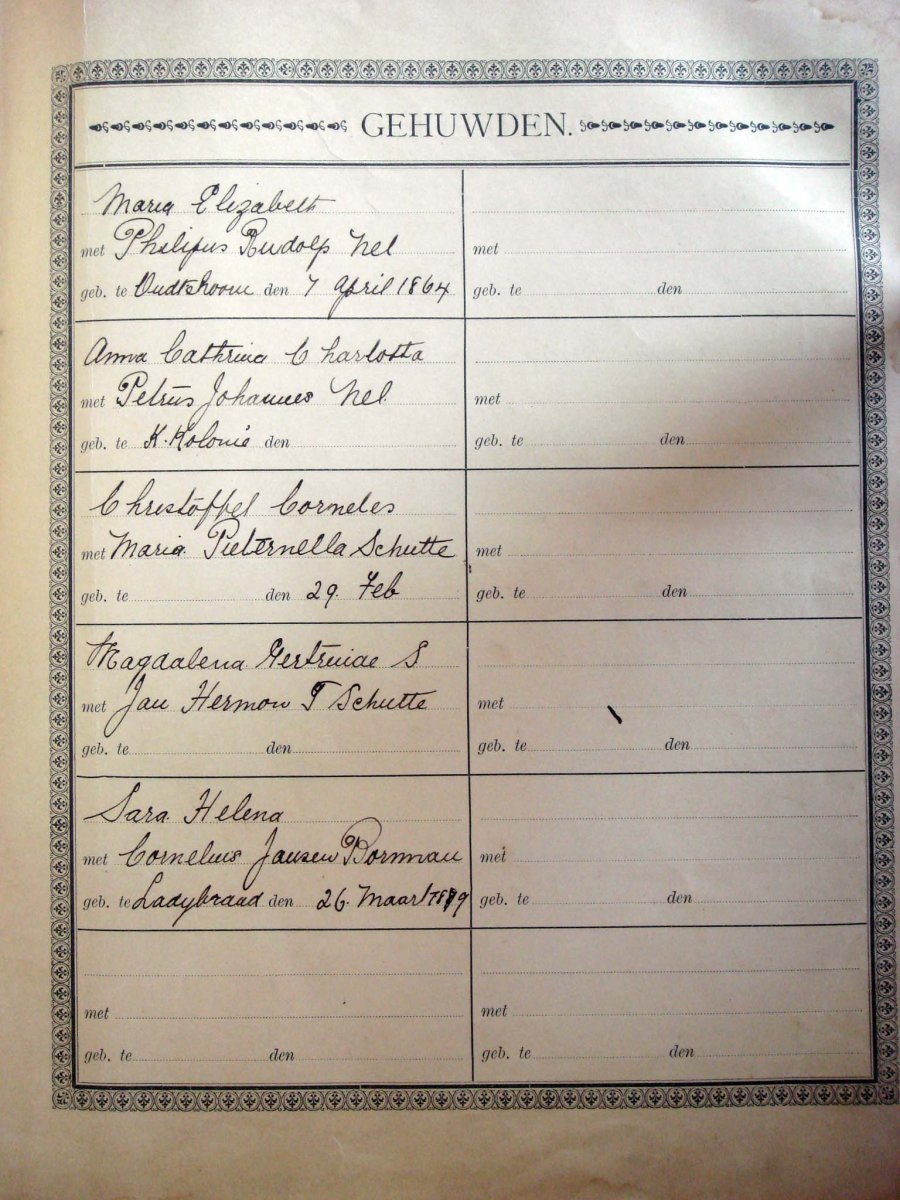 GEHUWDEN.
Maria Elizabeth
met Philipus Rudolf Nel
geb. te Oudtshoorn den 7 April 1864
Anna Cathrina Charlotta
met Petrus Johannes Nel
geb. te K. Kolonie den
Christoffel Corneles
met Maria Pieternella Schutte
geb. te den 29. Feb
Magdalena Gertruide S
met Jan Hermon T Schutte
geb. te den
Sara Helena
met Cornelius Jansen Bornman
geb. te Ladybrand den 26. Maart 1879
met
geb. te den
met
geb. te den
met
geb. te den
met
geb. te den
met
geb. te den
met
geb. te den
met
geb. te den